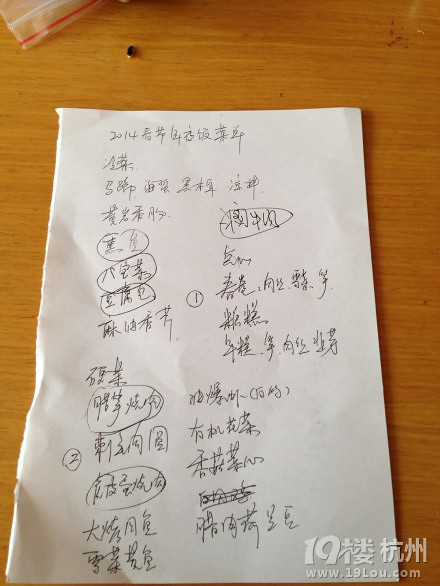 2014春节年夜饭菜单
冷菜
马蹄 海蜇 黑木耳 凉拌
黄岩香肠
酱牛肉
熏鱼
八宝菜
豆腐包
麻油香芹
①
点心
春卷、肉丝 雪菜 笋
糖糕
年糕、笋、肉丝 韭芽
硬菜
腊笋烧肉
②
刺毛肉圆
虎皮蛋烧肉
大烤目鱼
雪菜黄鱼
油爆虾(白的)
有机花菜
香菇菜心
腊肉荷兰豆
19楼 杭州
www.19lou.com